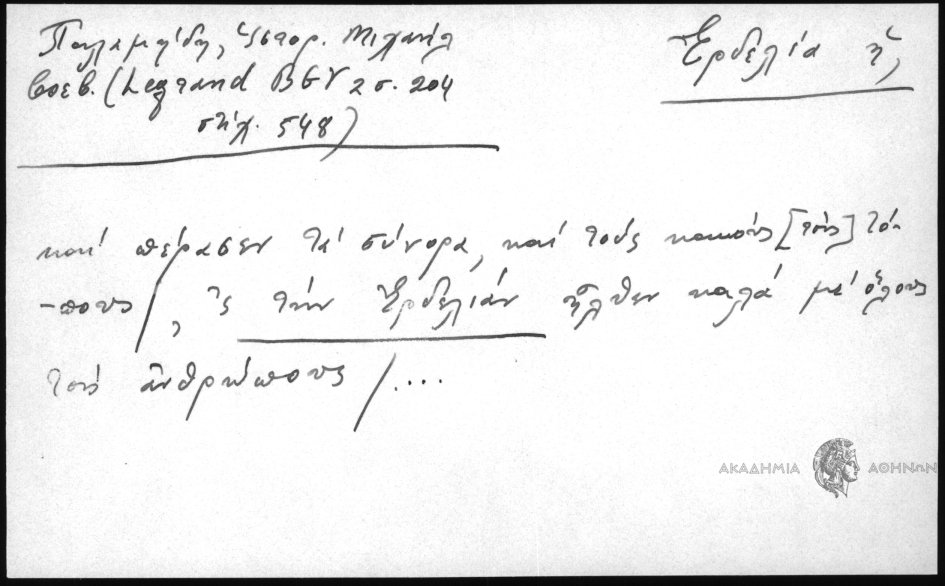 Παλαμήδη, Ἱστορ. Μιχαήλ
βοεβ. (Legrand BGV 2 σ. 204
στίχ. 548)
Ἐρδελία ἡ,
καί πέρασεν τά σύνορα, καί τούς κακούς [τούς] τό-
-πους /, ᾿ς τήν Ἐρδελιάν ἦλθεν καλά μέ ὅλους
τούς ἀνθρώπους /....
ΑΚΑΔΗΜΙΑ ΑΘΗΝΩΝ